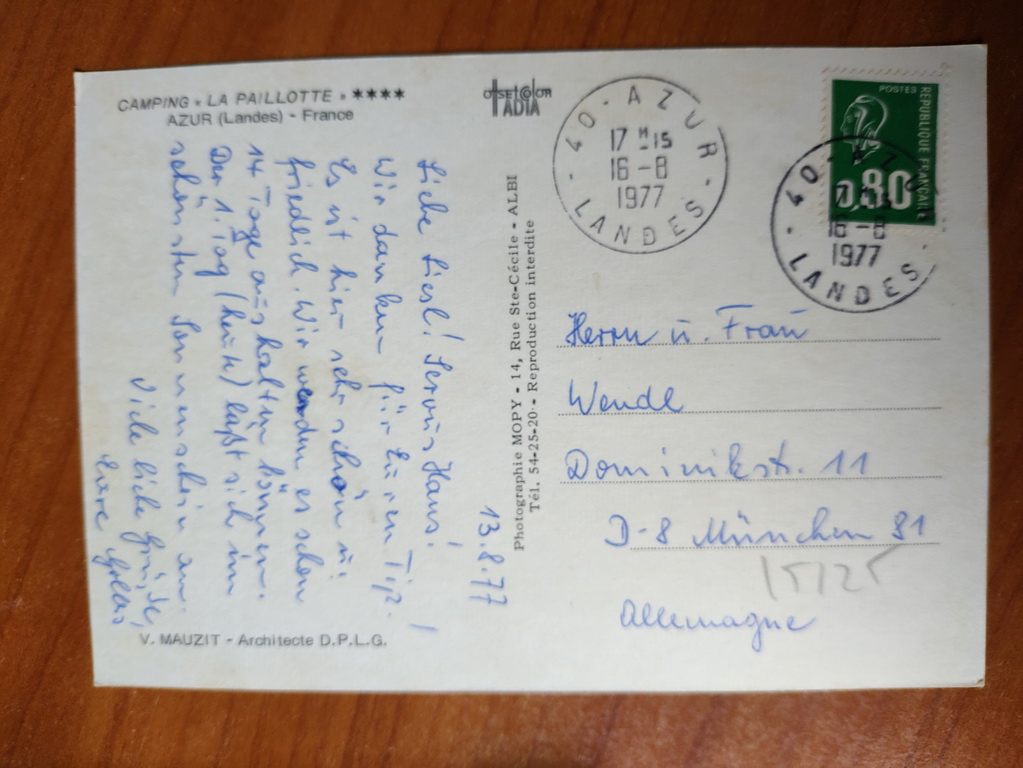 CAMPING « LA PAILLOTTE » ****
AZUR (Landes) - France
13.8.77
Liebe Liesl! Servus Hans!
Wir danken für Euren Tip!
Es ist hier sehr schön u.
friedlich. Wir werden es schon
14 Tage aushalten können.
Der 1. Tag (heute) läßt sich im
schönsten Sonnenschein an.
Viele liebe Grüße,
Eure
V. MAUZIT - Architecte D.P.L.G.
OFFSETCOLOR
TADIA
Photographie MOPY - 14, Rue Ste-Cécile - ALBI
Tél. 54-25-20 - Reproduction interdite
40 - AZUR
17 H -15
16 -8
1977
- LANDES -
POSTES
REPUBLIQUE FRANCAISE
0.80
40 - AZU
16 -8
1977
- LANDES -
Herrn u. Frau
Wendl
Dominikstr. 11
D-8 München 81
15125
Allemagne